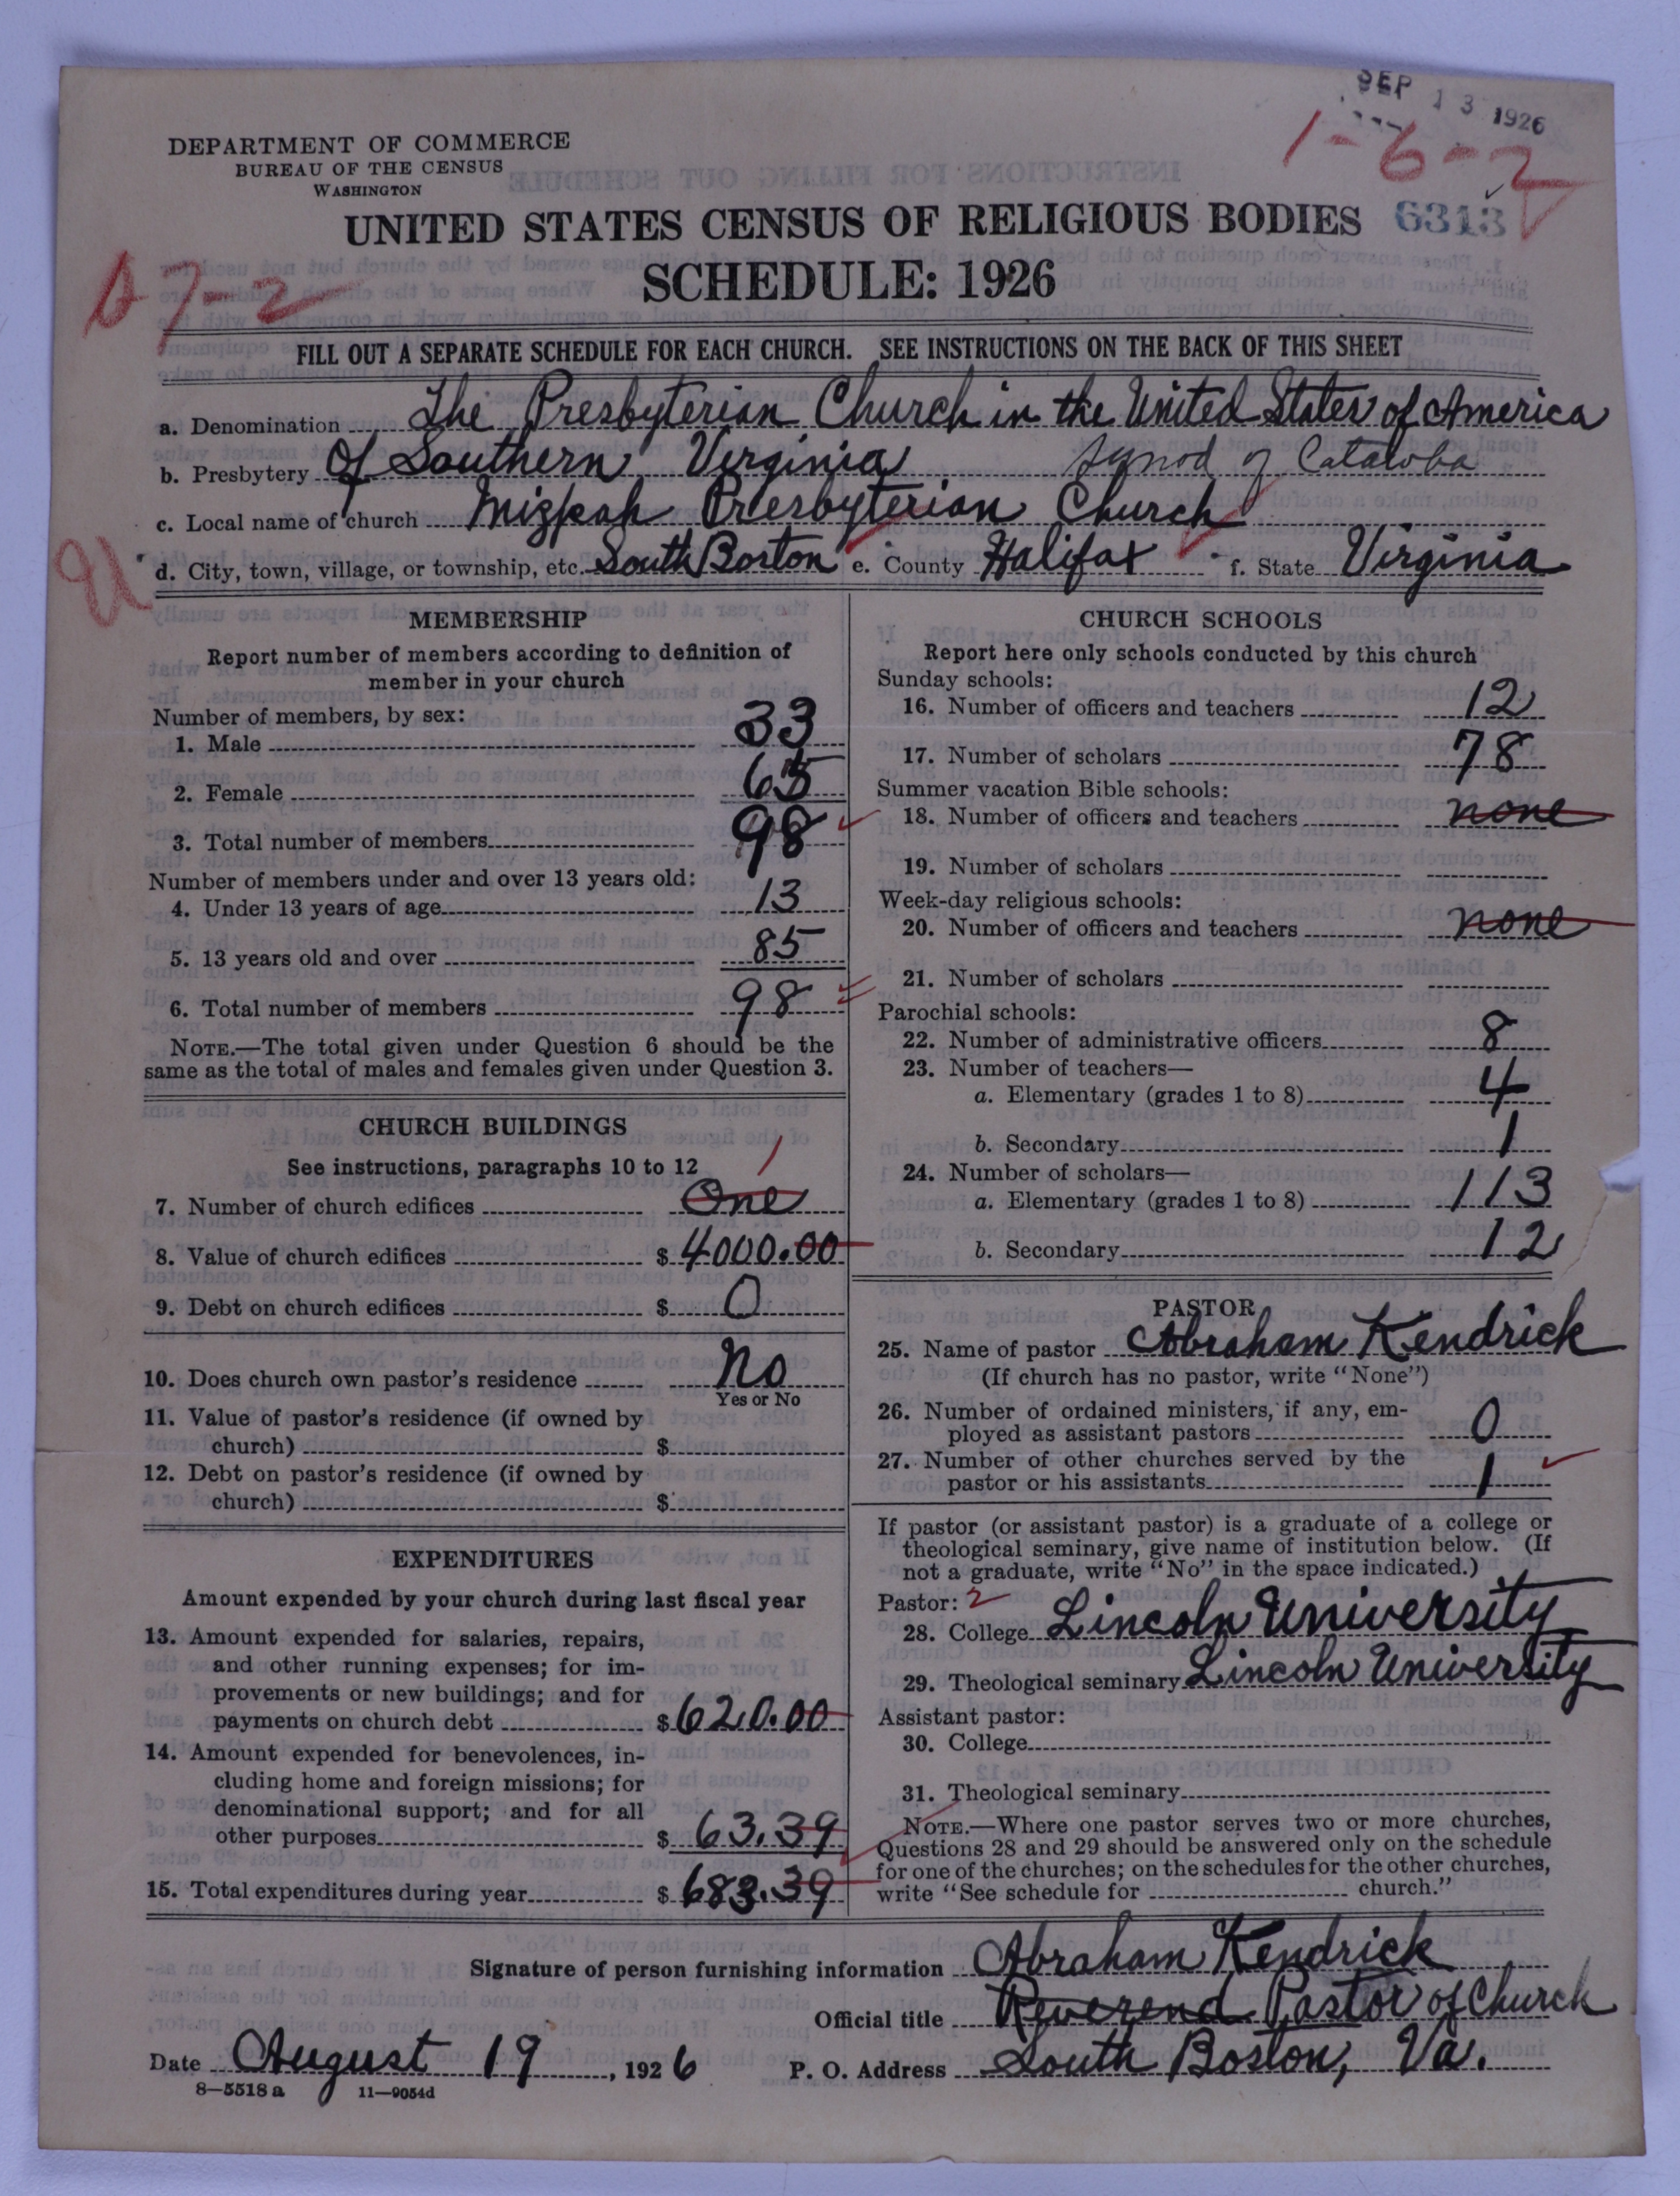 SEP 13 1926
1-6-2
DEPARTMENT OF COMMERCE
BUREAU OF THE CENSUS
WASHINGTON
UNITED STATES CENSUS OF RELIGIOUS BODIES 6313
SCHEDULE: 1926
7-2
FILL OUT A SEPARATE SCHEDULE FOR EACH CHURCH. SEE INSTRUCTIONS ON THE BACK OF THIS SHEET
a. Denomination The Presbyterian Church in the United States of America
b. Presbytery Of Southern Virginia Synod of Catawba
c. Local name of church Mizpah Presbyterian Church
d. City, town, village, or township, etc. South Boston e. County Halifax f. State Virginia
MEMBERSHIP
Report number of members according to definition of
member in your church
Number of members, by sex:
1. Male 33
2. Female 65
3. Total number of members 98
Number of members under and over 13 years old:
4. Under 13 years of age 13
5. 13 years old and over 85
6. Total number of members 98
NOTE.—The total given under Question 6 should be the
same as the total of males and females given under Question 3.
CHURCH BUILDINGS
See instructions, paragraphs 10 to 12
1
7. Number of church edifices One
8. Value of church edifices $ 4000.00
9. Debt on church edifices $ 0
10. Does church own pastor's residence No
Yes or No
11. Value of pastor's residence (if owned by
church) $
12. Debt on pastor's residence (if owned by
church) $
EXPENDITURES
Amount expended by your church during last fiscal year
13. Amount expended for salaries, repairs,
and other running expenses; for im-
provements or new buildings; and for
payments on church debt $ 620.00
14. Amount expended for benevolences, in-
cluding home and foreign missions; for
denominational support; and for all
other purposes $ 63.39
15. Total expenditures during year $ 683.39
CHURCH SCHOOLS
Report here only schools conducted by this church
Sunday schools:
16. Number of officers and teachers 12
17. Number of scholars 78
Summer vacation Bible schools:
18. Number of officers and teachers none
19. Number of scholars
Week-day religious schools:
20. Number of officers and teachers none
21. Number of scholars
Parochial schools:
22. Number of administrative officers 8
23. Number of teachers—
a. Elementary (grades 1 to 8) 4
b. Secondary 1
24. Number of scholars—
a. Elementary (grades 1 to 8) 113
b. Secondary 12
PASTOR
25. Name of pastor Abraham Kendrick
(If church has no pastor, write "None")
26. Number of ordained ministers, if any, em-
ployed as assistant pastors 0
27. Number of other churches served by the
pastor or his assistants 1
If pastor (or assistant pastor) is a graduate of a college or
theological seminary, give name of institution below. (If
not a graduate, write "No" in the space indicated.)
Pastor: 2
28. College Lincoln University
29. Theological seminary Lincoln University
Assistant pastor:
30. College
31. Theological seminary
NOTE.—Where one pastor serves two or more churches,
Questions 28 and 29 should be answered only on the schedule
for one of the churches; on the schedules for the other churches,
write "See schedule for church."
Signature of person furnishing information Abraham Kendrick
Official title Reverend Pastor of Church
Date August 19, 1926 P. O. Address South Boston, Va.
8—5518 a 11—9054d